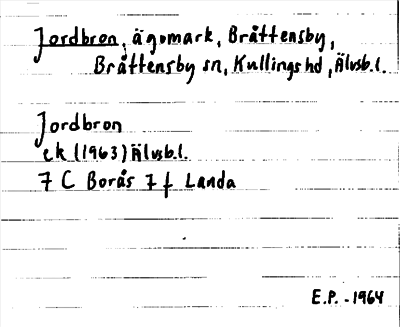 Jordbron, ägomark, Bråttensby,
Bråttensby sn, Kullings hd, Älvsb.l.
Jordbron
ek (1963) Älvsb.l.
7 C Borås 7 f Landa
E.P. - 1964